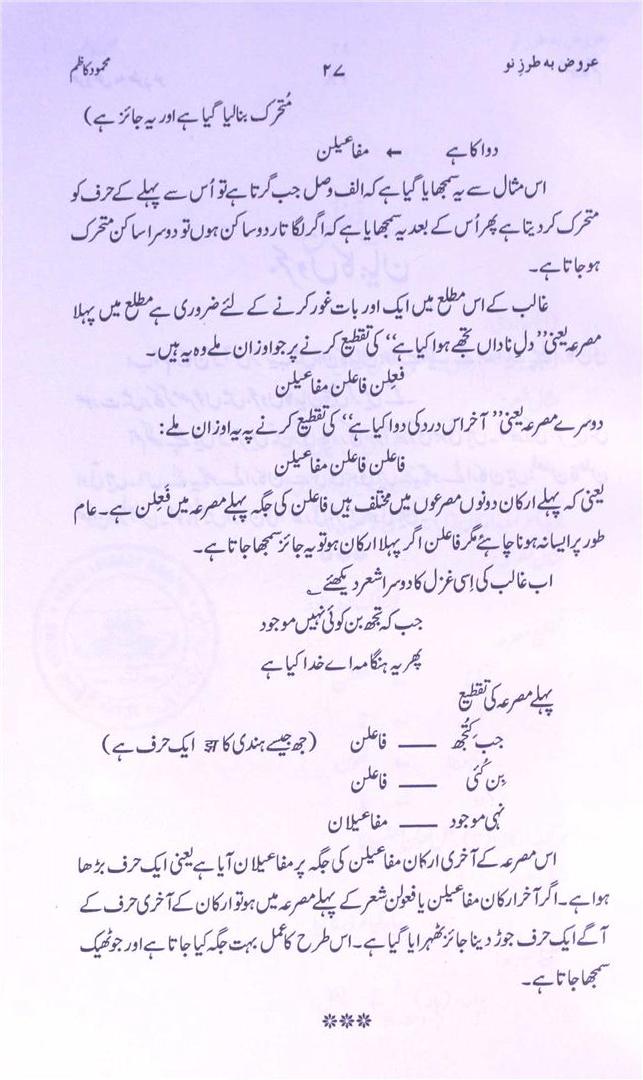 عروض بہ طرزِ نو ۲۷ محمود کاظم
مُتحرک بنالیا گیا ہے اور یہ جائز ہے)
دوا کا ہے ← مفاعیلن
اس مثال سے یہ سمجھایا گیا ہے کہ الف وصل جب گرتا ہے تو اُس سے پہلے کے حرف کو
متحرک کر دیتا ہے پھر اُس کے بعد یہ سمجھایا ہے کہ اگر لگا تار دو ساکن ہوں تو دوسرا ساکن متحرک
ہو جاتا ہے۔
غالب کے اس مطلع میں ایک اور بات غور کرنے کے لئے ضروری ہے مطلع میں پہلا
مصرعہ یعنی ”دل ناداں تجھے ہوا کیا ہے“ کی تقطیع کرنے پر جو اوزان ملے وہ یہ ہیں۔
فَعِلن فاعلن مفاعیلن
دوسرے مصرعہ یعنی ”آخر اس درد کی دوا کیا ہے“ کی تقطیع کرنے پہ یہ اوزان ملے:
فاعلن فاعلن مفاعیلن
یعنی کہ پہلے ارکان دونوں مصرعوں میں مختلف ہیں فاعلن کی جگہ پہلے مصرعہ میں فَعِلن ہے۔ عام
طور پر ایسا نہ ہونا چاہئے مگر فاعلن اگر پہلا ارکان ہو تو یہ جائز سمجھا جاتا ہے۔
اب غالب کی اِسی غزل کا دوسرا شعر دیکھئے ؎
جب کہ تجھ بن کوئی نہیں موجود
پھر یہ ہنگامہ اے خدا کیا ہے
پہلے مصرعہ کی تقطیع
جب کَتُجھ —— فاعلن (جھ جیسے ہندی کا झ ایک حرف ہے)
بِن کُئی —— فاعلن
نہی موجود —— مفاعیلان
اس مصرعہ کے آخری ارکان مفاعیلن کی جگہ پر مفاعیلان آیا ہے یعنی ایک حرف بڑھا
ہوا ہے۔ اگر آخر ارکان مفاعیلن یا فعولن شعر کے پہلے مصرعہ میں ہو تو ارکان کے آخری حرف کے
آگے ایک حرف جوڑ دینا جائز ٹھہرایا گیا ہے۔ اس طرح کا عمل بہت جگہ کیا جاتا ہے اور جو ٹھیک
سمجھا جاتا ہے۔
***